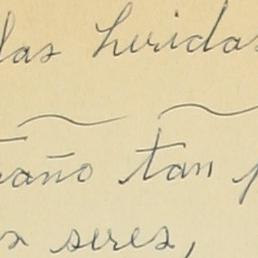 las heridas
año tan
seres,